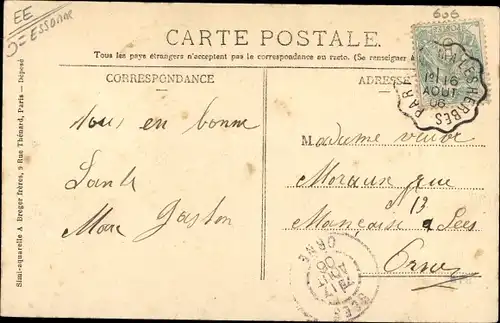 EE
ESSONNE
606
CARTE POSTALE.
Tous les pays étrangers n'acceptent pas la correspondance au recto. (Se renseigner à
CORRESPONDANCE
ADRESSE
Simi-aquarelle A Breger frères, 9 Rue Thénard, Paris — Déposé
16
AOUT
06
Tous en bonne
Santé
Gaston
Madame veuve
Moraux rue
13
Mançaise a Sées
Orne
ORNE
AOUT
06